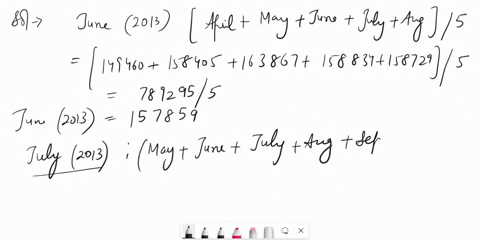 Sol → June (2013) [April + May + June + July + Aug] / 5
= [149460 + 158405 + 163867 + 158834 + 158729] / 5
= 789295/5
June (2013) = 157859
July (2013) : (May + June + July + Aug + Sep